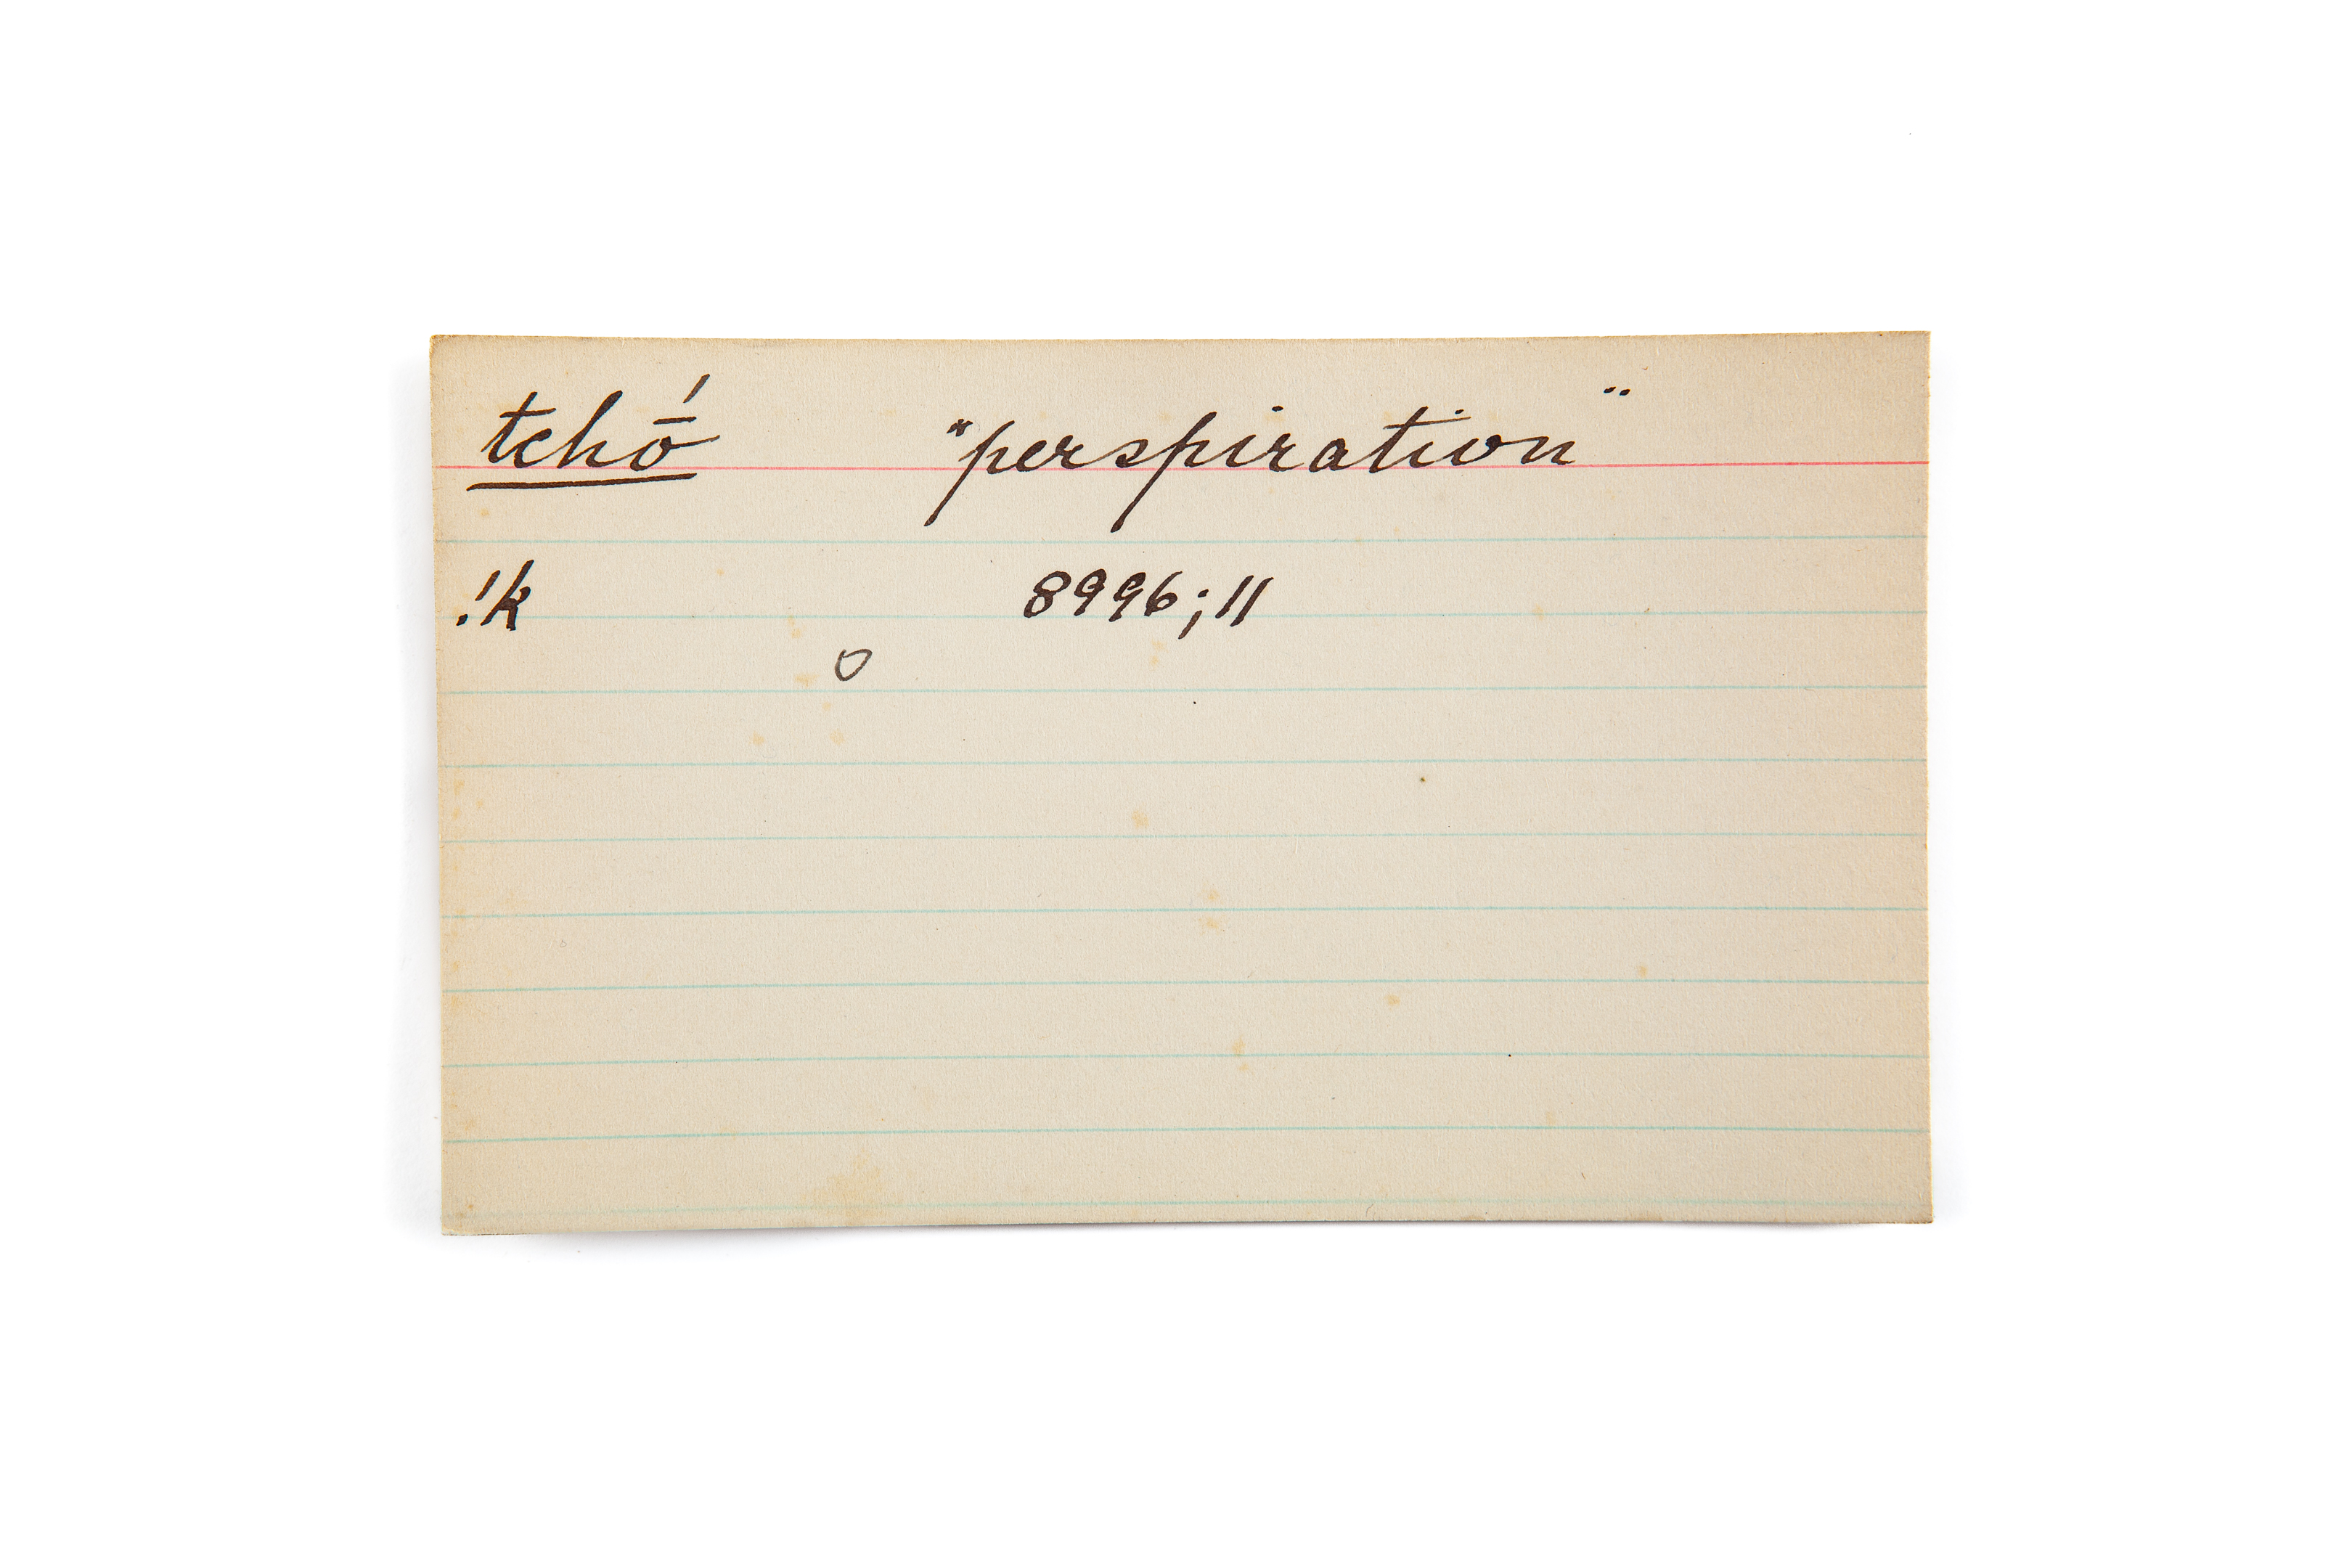 tchṓ "perspiration"
!k 8996; 11
o